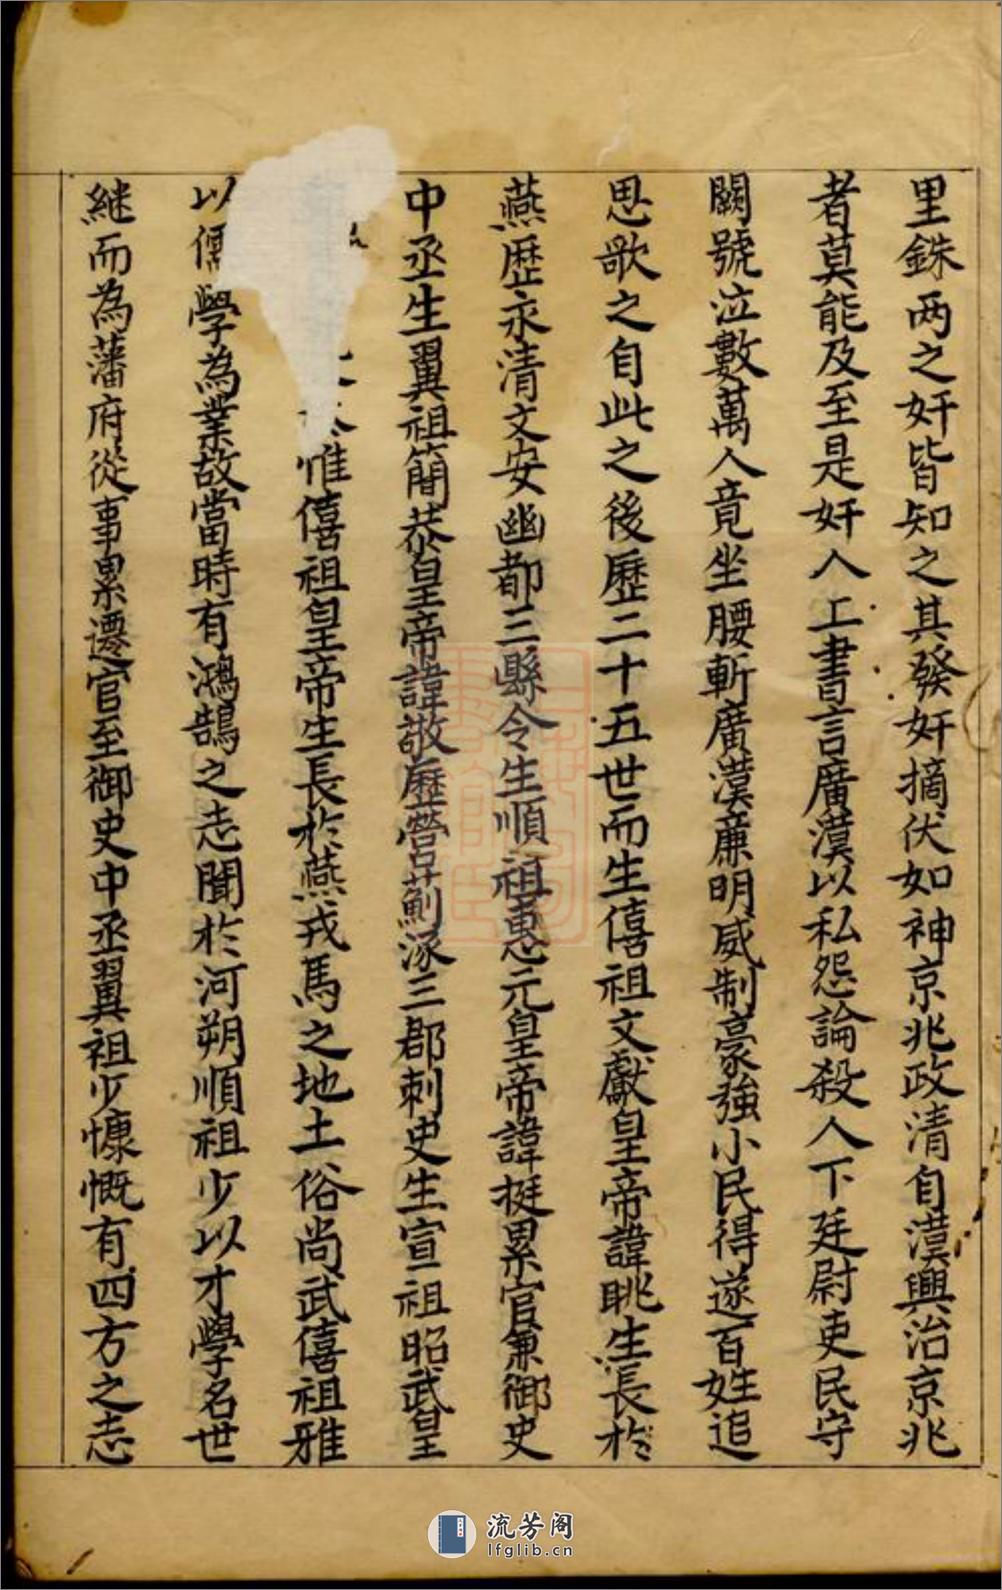 里銖两之奸皆知之其發奸摘伏如神京兆政清自漢興治京兆
者莫能及至是奸人上書言廣漢以私怨論殺人下廷尉吏民守
闕號泣數萬人竟坐腰斬廣漢廉明威制豪強小民得遂百姓追
思歌之自此之後歷二十五世而生僖祖文獻皇帝諱眺生長於
燕歷永清文安幽都三縣令生順祖惠元皇帝諱挺累官兼御史
中丞生翼祖簡恭皇帝諱敬歷營薊涿三郡刺史生宣祖昭武皇
惟僖祖皇帝生長於燕戎馬之地土俗尚武僖祖雅
以儒學為業故當時有鴻鵠之志聞於河朔順祖少以才學名世
継而為藩府從事累遷官至御史中丞翼祖少慷慨有四方之志
流芳阁
lfglib.cn